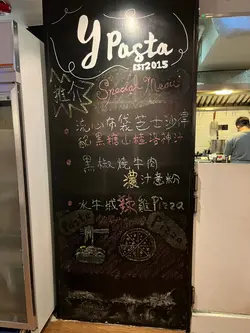 y Pasta
EST 2015
推介
Special Menu
流心布袋芝士沙律
黑椒燒牛肉
濃汁意粉
水牛城辣雞Pizza